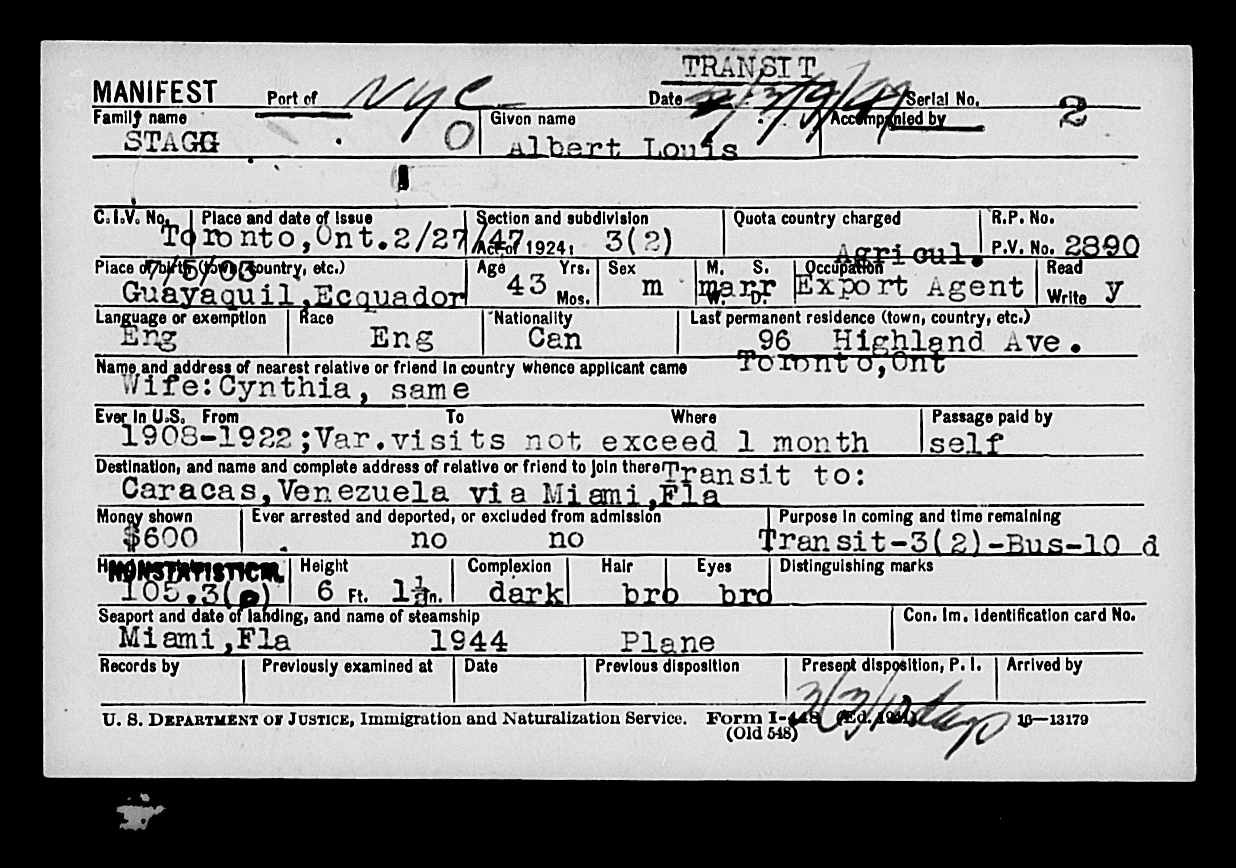 TRANSIT
MANIFEST Port of NYC Date Serial No. 2
Family name Given name Accompanied by
STAGG O Albert Louis
C.I.V. No. Place and date of issue Section and subdivision Quota country charged R.P. No.
Toronto,Ont.2/27/47 Act of 1924, 3(2) Agricul. P.V. No. 2890
Place of birth (town, country, etc.) 7/5/03 Age Yrs. Sex M. S. Occupation Read
Guayaquil,Ecquador 43 Mos. m marr W. D. Export Agent Write y
Language or exemption Race Nationality Last permanent residence (town, country, etc.)
Eng Eng Can 96 Highland Ave.
Toronto,Ont
Name and address of nearest relative or friend in country whence applicant came
Wife:Cynthia, same
Ever in U.S. From To Where Passage paid by
1908-1922;Var.visits not exceed 1 month self
Destination, and name and complete address of relative or friend to join there Transit to:
Caracas,Venezuela via Miami,Fla
Money shown Ever arrested and deported, or excluded from admission Purpose in coming and time remaining
$600 no no Transit-3(2)-Bus-10 d
NONSTATISTICAL Height Complexion Hair Eyes Distinguishing marks
105.3( ) 6 Ft. 1½ In. dark bro bro
Seaport and date of landing, and name of steamship Con. Im. Identification card No.
Miami,Fla 1944 Plane
Records by Previously examined at Date Previous disposition Present disposition, P. I. Arrived by
U. S. DEPARTMENT OF JUSTICE, Immigration and Naturalization Service. Form I-448 16—13179
(Old 548)